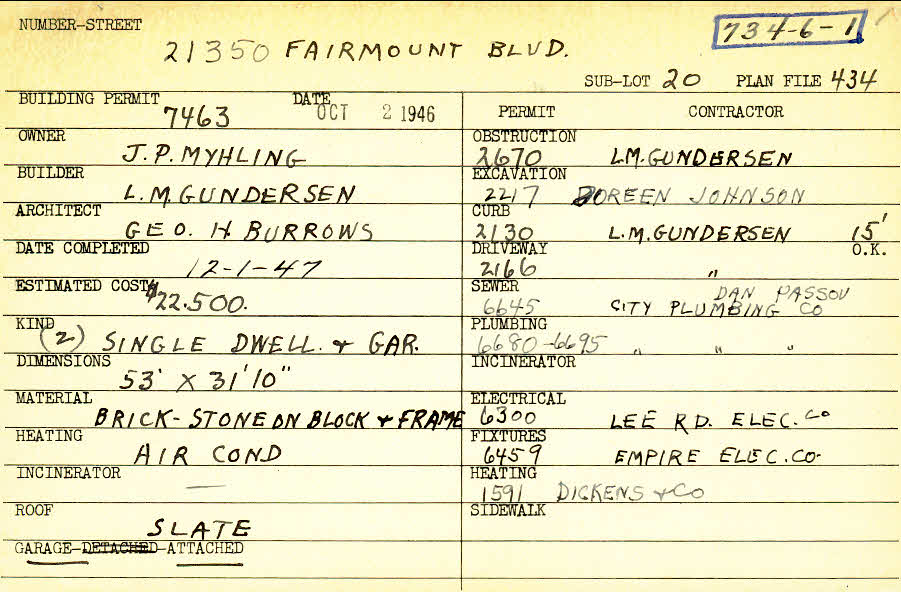 NUMBER-STREET
734-6-1
21350 FAIRMOUNT BLVD.
SUB-LOT 20 PLAN FILE 434
BUILDING PERMIT 7463 DATE OCT 2 1946
OWNER
J.P. MYHLING
BUILDER
L.M. GUNDERSEN
ARCHITECT
GEO. H BURROWS
DATE COMPLETED
12-1-47
ESTIMATED COST
$22.500.
KIND
(2) SINGLE DWELL. & GAR.
DIMENSIONS
53' X 31'10"
MATERIAL
BRICK-STONE ON BLOCK & FRAME
HEATING
AIR COND
INCINERATOR
—
ROOF
SLATE
GARAGE-DETACHED-ATTACHED
PERMIT CONTRACTOR
OBSTRUCTION
2670 L.M. GUNDERSEN
EXCAVATION
2217 DOREEN JOHNSON
CURB
2130 L.M. GUNDERSEN 15'
DRIVEWAY O.K.
2166 "
SEWER DAN PASSOV
6645 CITY PLUMBING CO
PLUMBING
6680-6695 " " "
INCINERATOR
ELECTRICAL
6300 LEE RD. ELEC. CO
FIXTURES
6459 EMPIRE ELEC. CO.
HEATING
1591 DICKENS & CO
SIDEWALK